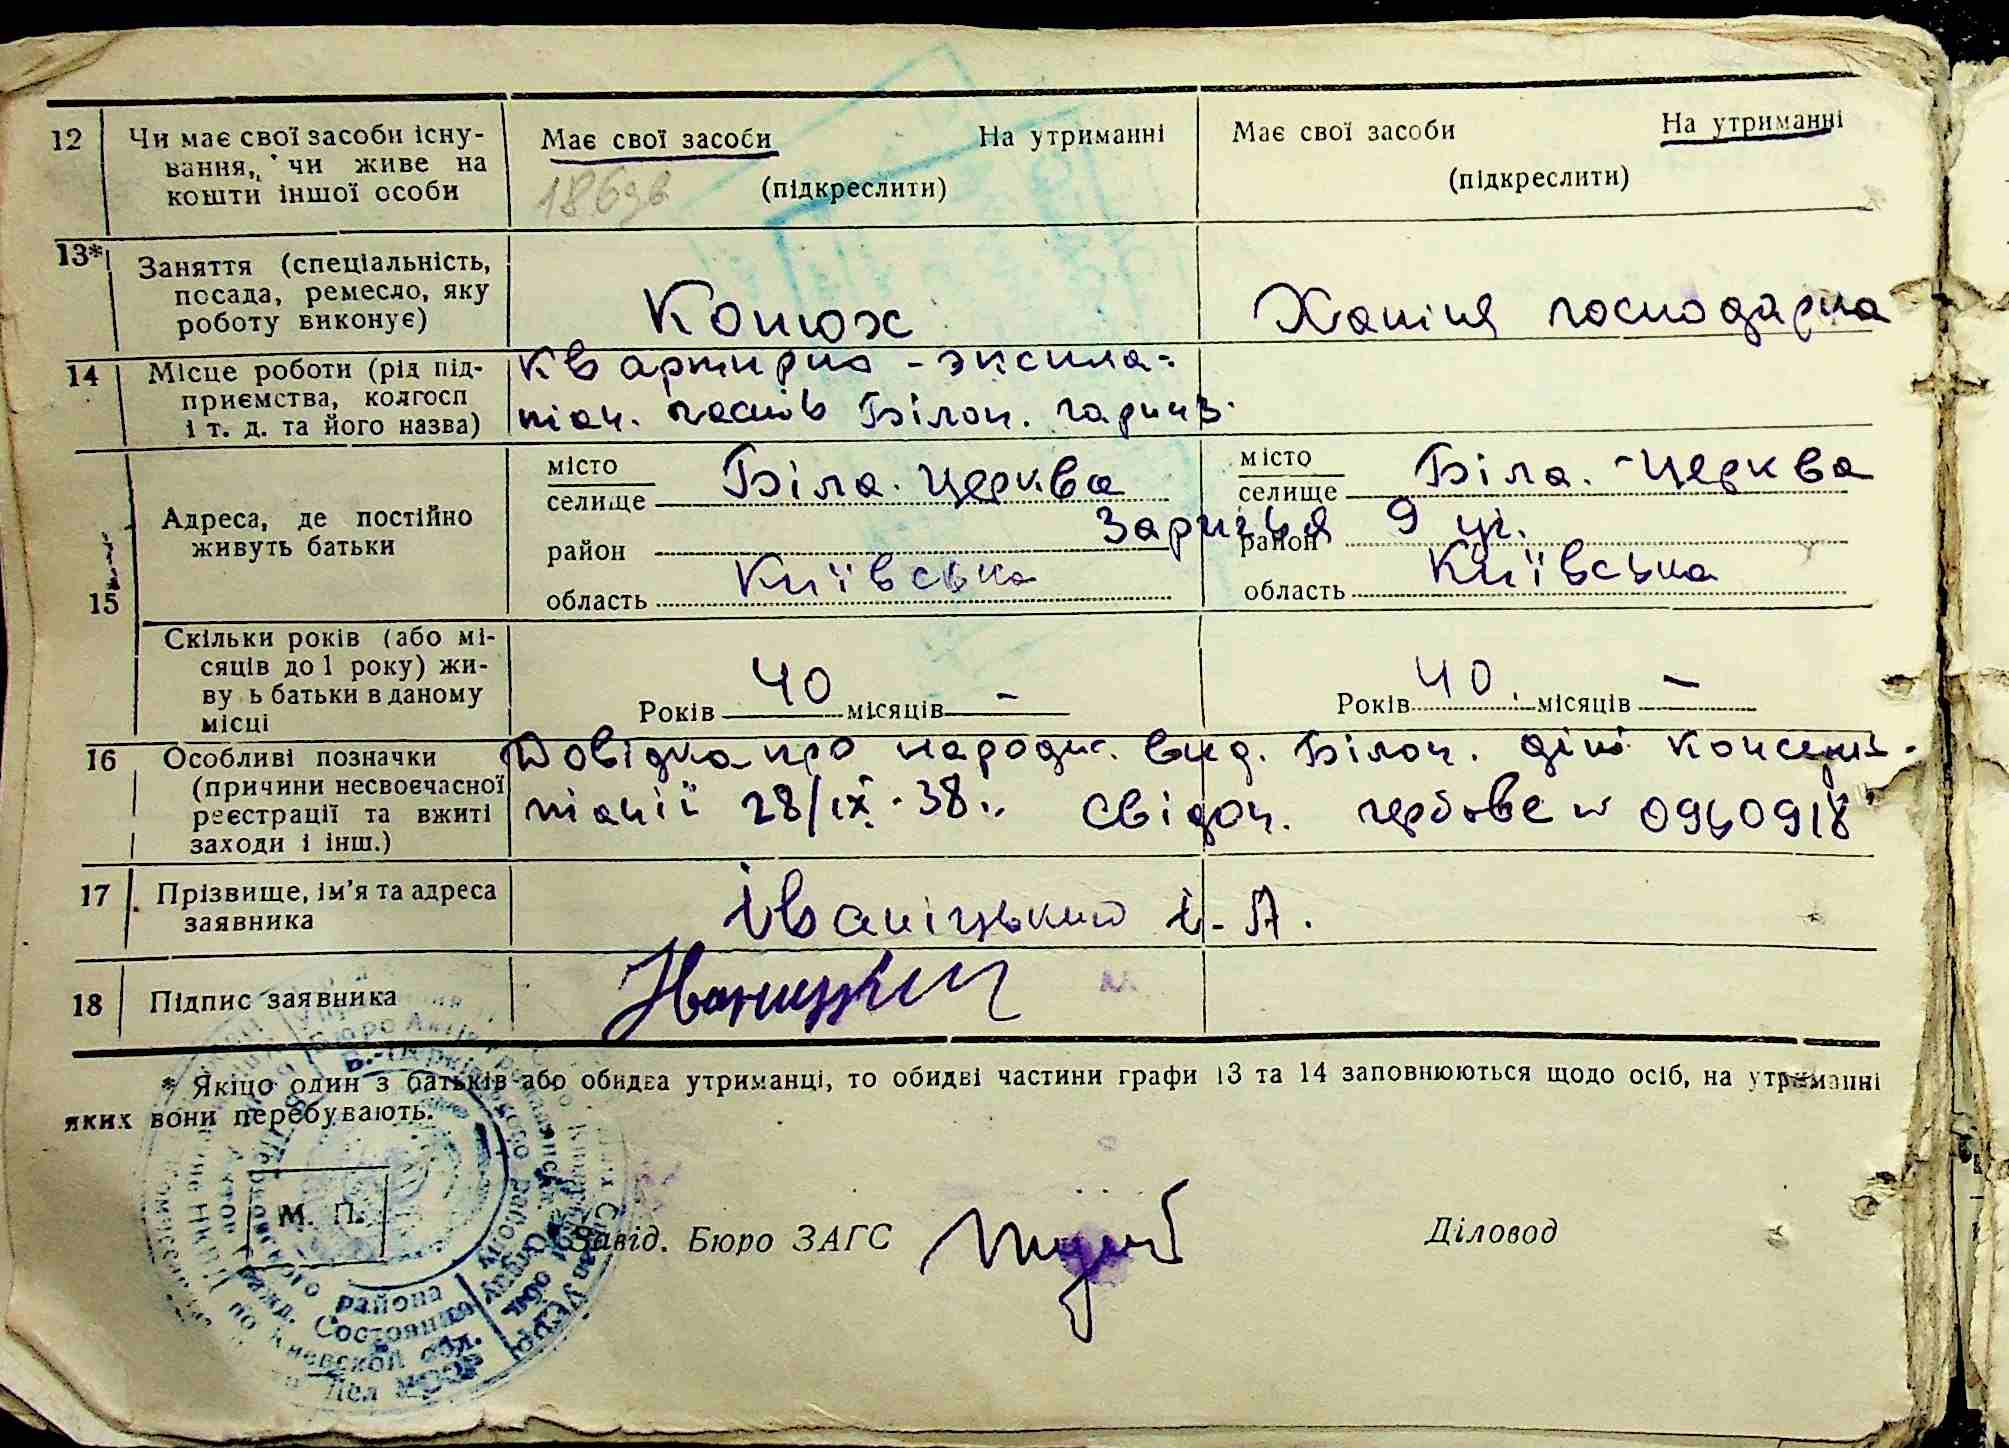 12 Чи має свої засоби існу-
вання, чи живе на
кошти іншої особи
Має свої засоби На утриманні
(підкреслити)
Має свої засоби На утриманні
(підкреслити)
13* Заняття (спеціальність,
посада, ремесло, яку
роботу виконує)
Конюх
Хатня господарка
14 Місце роботи (рід під-
приємства, колгосп
і т. д. та його назва)
Квартирно-эксплоа-
тіач. часть Білоц. гарніз.
15 Адреса, де постійно
живуть батьки
місто
селище Біла-Церква
район
область Київська
місто
селище Біла-Церква
Заріччя 9 
район
область Київська
Скільки років (або мі-
сяців до 1 року) жи-
ву ь батьки в даному
місці
Років 40 місяців —
Років 40. місяців —
16 Особливі позначки
(причини несвоєчасної
реєстрації та вжиті
заходи і інш.)
Довідка про народж. вид. Білоц. діт
28/IX.38. Свідоц. гербове № 0960918
17 Прізвище, ім'я та адреса
заявника
Іваніцький І. А.
18 Підпис заявника
Иваницкий
* Якщо один з батьків або обидва утриманці, то обидві частини графи 13 та 14 заповнюються щодо осіб, на утриманні
яких вони перебувають.
М. П.
Завід. Бюро ЗАГС
Діловод
района
Состояния
по Киевской обл.